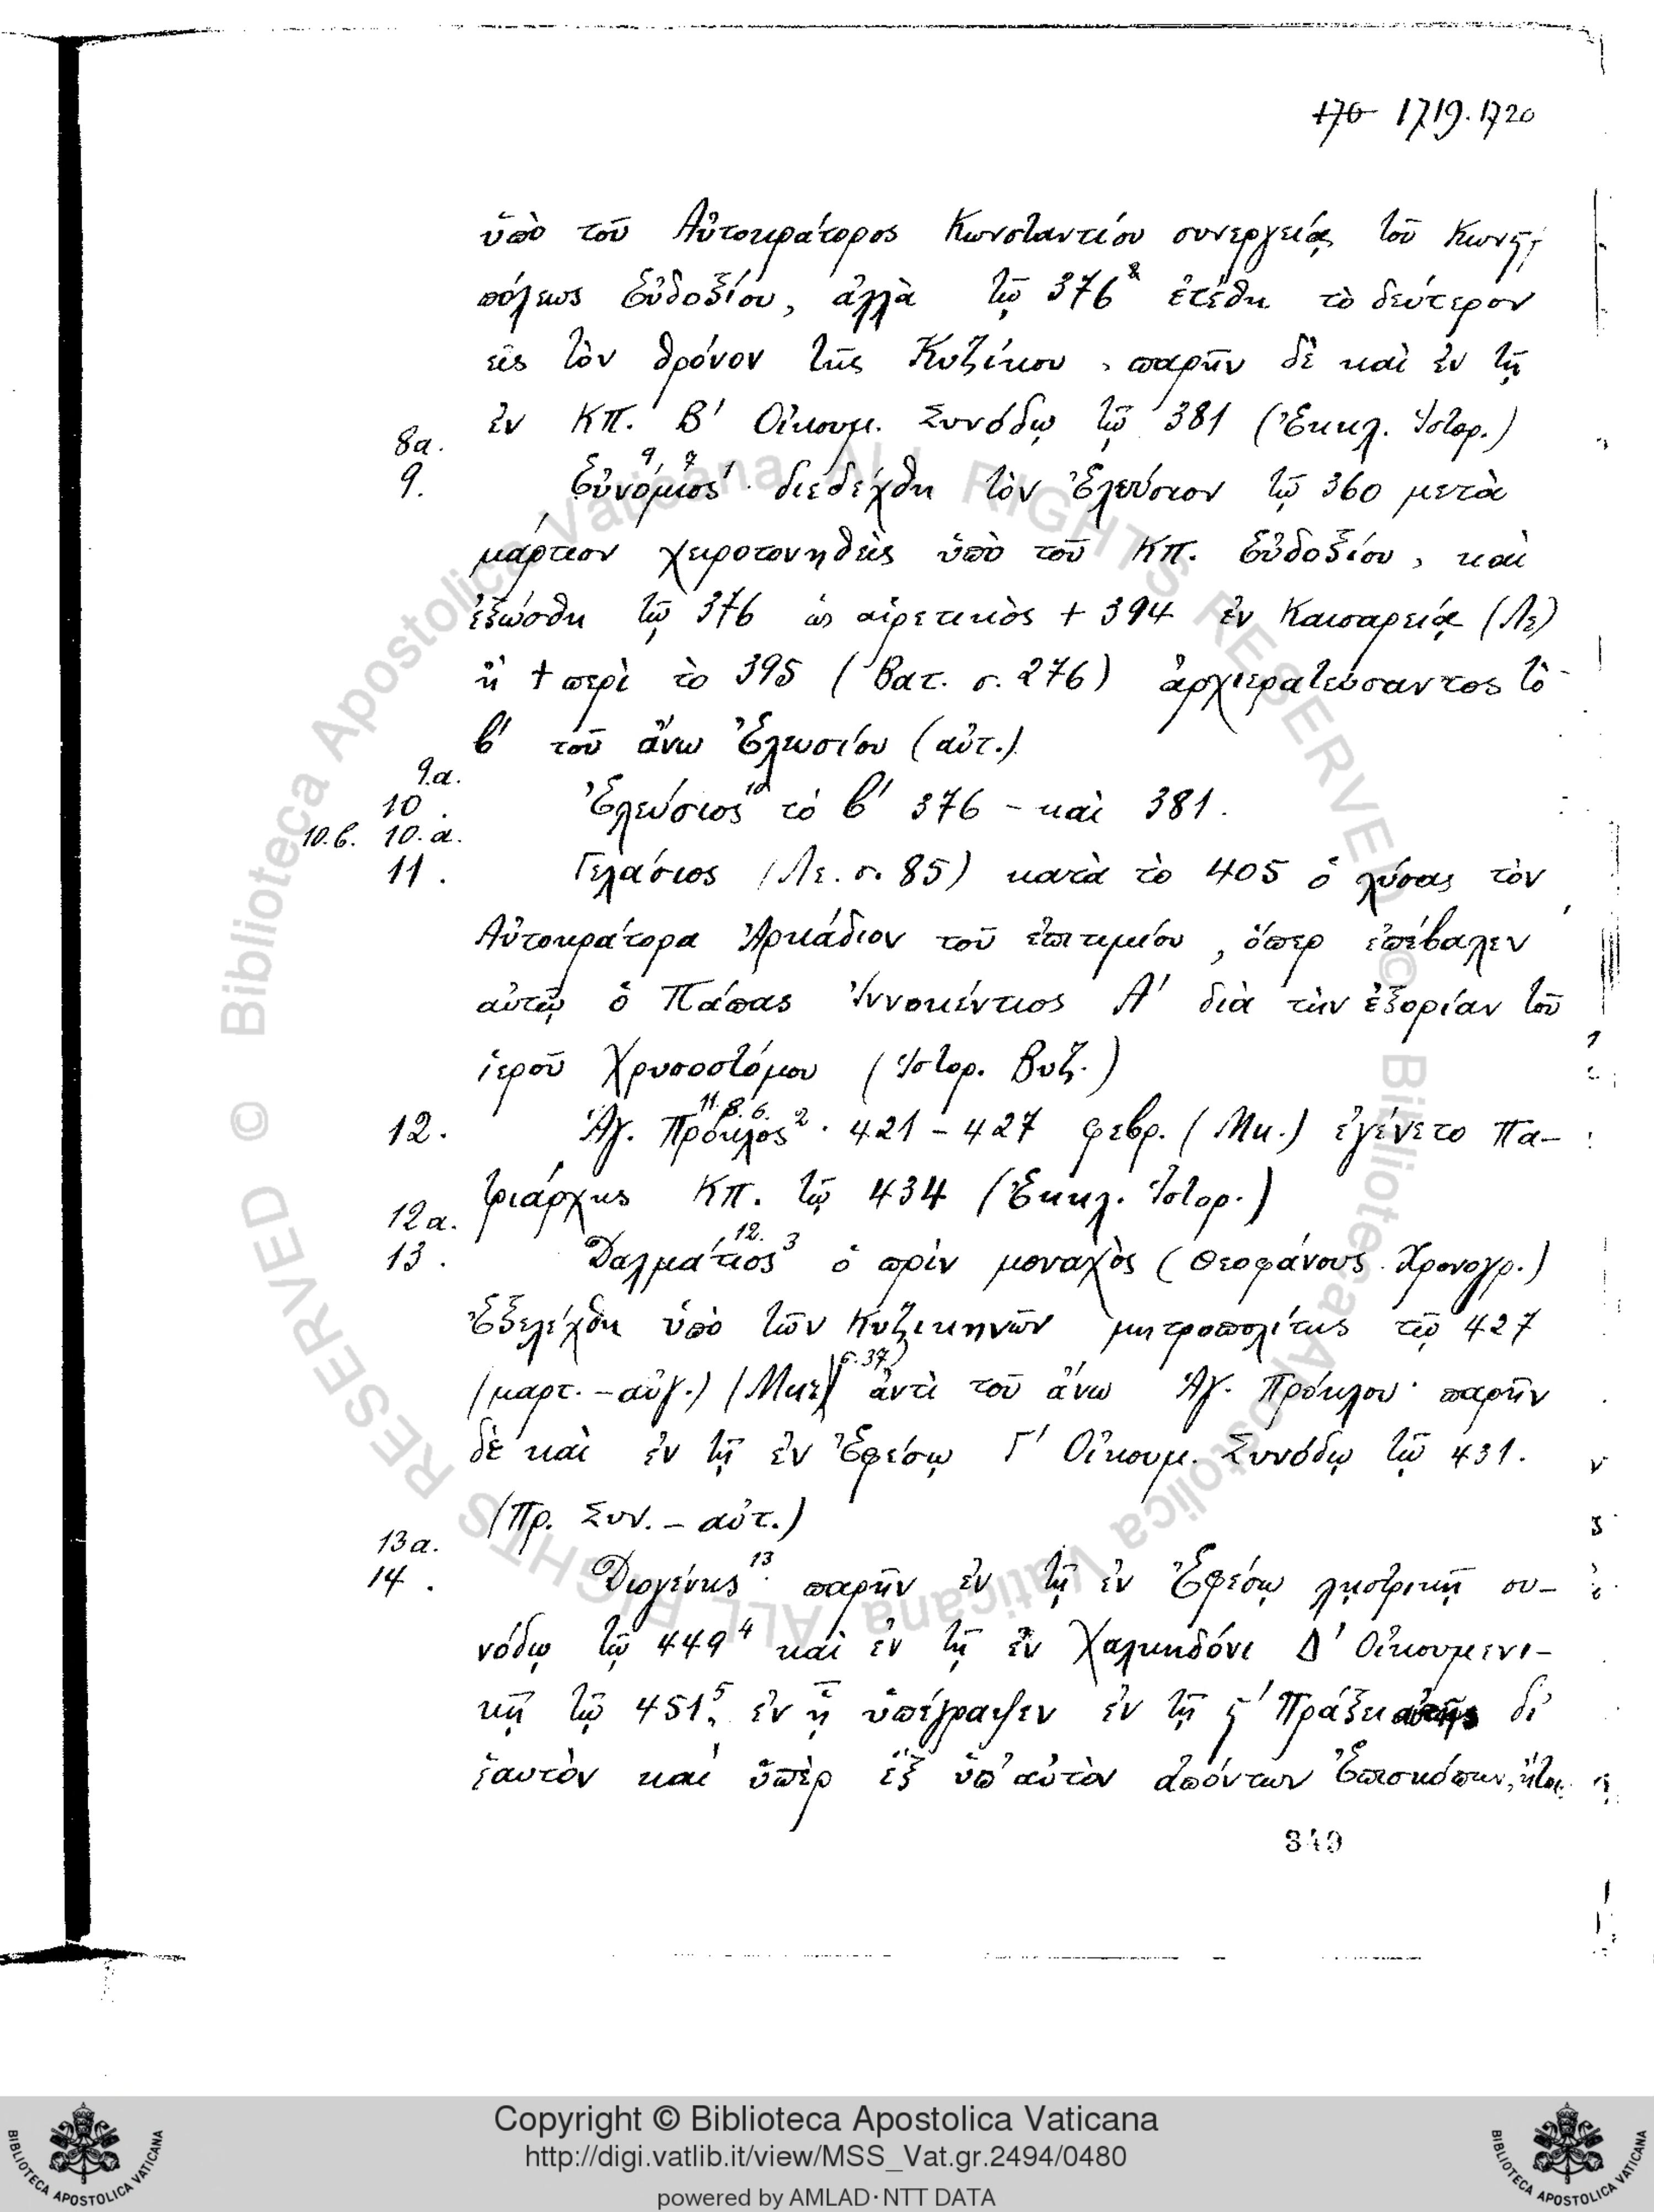 170 1719.1720
ὑπὸ τοῦ Αὐτοκράτορος Κωνσταντίου συνεργείᾳ τοῦ Κωνςτ
πόλεως Εὐδοξίου, ἀλλὰ τῷ 376 ἐτέθη τὸ δεύτερον
εἰς τὸν θρόνον τῆς Κυζίκου, παρῆν δὲ καὶ ἐν τῇ
ἐν ΚΠ. Β' Οἰκουμ. Συνόδῳ τῷ 381 (Ἐκκλ. Ἱστορ.)
8α.
9. Εὐνόμιος¹· διεδέχθη τὸν Ἐλεύσιον τῷ 360 μετὰ
μάρτιον χειροτονηθεὶς ὑπὸ τοῦ ΚΠ. Εὐδοξίου, καὶ
ἐξώσθη τῷ 376 ὡς αἱρετικὸς + 394 ἐν Καισαρείᾳ (Λε)
ἢ + περὶ τὸ 395 (Βατ. σ. 276) ἀρχιερατεύσαντος τὸ
β' τοῦ ἄνω Ἐλευσίου (αὐτ.)
9.α.
10. Ἐλεύσιος¹⁰ τὸ β' 376 - καὶ 381.
10.β. 10.α.
11. Γελάσιος (Λε. σ. 85) κατὰ τὸ 405 ὁ λύσας τὸν
Αὐτοκράτορα Ἀρκάδιον τοῦ ἐπιτιμίου, ὅπερ ἐπέβαλεν
αὐτῷ ὁ Πάπας Ἰννοκέντιος Α' διὰ τὴν ἐξορίαν τοῦ
ἱεροῦ Χρυσοστόμου (Ἱστορ. Βυζ.)
11. β. 6.
12. Ἅγ. Πρόκλος²· 421 - 427 φεβρ. (Μκ.) ἐγένετο Πα-
τριάρχης ΚΠ. τῷ 434 (Ἐκκλ. Ἱστορ.)
12α. 12.
13. Δαλμάτιος³ ὁ πρὶν μοναχὸς (Θεοφάνους Χρονογρ.)
Ἐξελέχθη ὑπὸ τῶν Κυζικηνῶν μητροπολίτης τῷ 427
(μαρτ. - αὐγ.) (Μκε σ. 37) ἀντὶ τοῦ ἄνω Ἁγ. Πρόκλου· παρῆν
δὲ καὶ ἐν τῇ ἐν Ἐφέσῳ Γ' Οἰκουμ. Συνόδῳ τῷ 431.
(Πρ. Συν. - αὐτ.)
13α.
14. Διογένης¹³· παρῆν ἐν τῇ ἐν Ἐφέσῳ λῃστρικῇ συ-
νόδῳ τῷ 449⁴ καὶ ἐν τῇ ἐν Χαλκηδόνι Δ' Οἰκουμενι-
κῇ τῷ 451⁵, ἐν ᾗ ὑπέγραψεν ἐν τῇ ς' Πράξει δι'
ἑαυτὸν καὶ ὑπὲρ ἓξ ὑπ' αὐτὸν ἀπόντων Ἐπισκόπων, ἤτοι
349
© Biblioteca Apostolica Vaticana ALL RIGHTS RESERVED © Biblioteca Apostolica Vaticana ALL RIGHTS RESERVED
Copyright © Biblioteca Apostolica Vaticana
http://digi.vatlib.it/view/MSS_Vat.gr.2494/0480
powered by AMLAD·NTT DATA
BIBLIOTECA APOSTOLICA VATICANA
BIBLIOTECA APOSTOLICA VATICANA